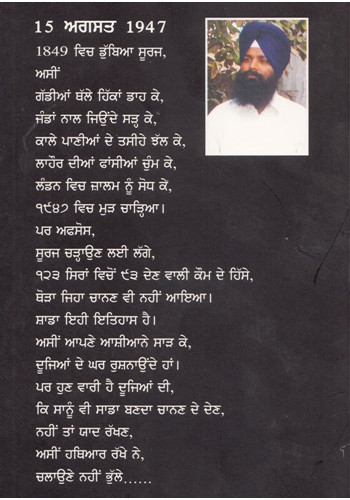 15 ਅਗਸਤ 1947
1849 ਵਿਚ ਡੁੱਬਿਆ ਸੂਰਜ,
ਅਸੀਂ
ਗੱਡੀਆਂ ਥੱਲੇ ਹਿੱਕਾਂ ਡਾਹ ਕੇ,
ਜੰਡਾਂ ਨਾਲ ਜਿਉਂਦੇ ਸੜ੍ਹ ਕੇ,
ਕਾਲੇ ਪਾਣੀਆਂ ਦੇ ਤਸੀਹੇ ਝੱਲ ਕੇ,
ਲਾਹੌਰ ਦੀਆਂ ਫਾਂਸੀਆਂ ਚੁੰਮ ਕੇ,
ਲੰਡਨ ਵਿਚ ਜ਼ਾਲਮ ਨੂੰ ਸੋਧ ਕੇ,
੧੯੪੭ ਵਿਚ ਮੁੜ ਚਾੜ੍ਹਿਆ।
ਪਰ ਅਫਸੋਸ,
ਸੂਰਜ ਚੜ੍ਹਾਉਣ ਲਈ ਲੱਗੇ,
੧੨੩ ਸਿਰਾਂ ਵਿਚੋਂ ੯੩ ਦੇਣ ਵਾਲੀ ਕੌਮ ਦੇ ਹਿੱਸੇ,
ਥੋੜਾ ਜਿਹਾ ਚਾਨਣ ਵੀ ਨਹੀਂ ਆਇਆ।
ਸ਼ਾਡਾ ਇਹੀ ਇਤਿਹਾਸ ਹੈ।
ਅਸੀਂ ਆਪਣੇ ਆਸ਼ੀਆਨੇ ਸਾੜ ਕੇ,
ਦੂਜਿਆਂ ਦੇ ਘਰ ਰੁਸ਼ਨਾਉਂਦੇ ਹਾਂ।
ਪਰ ਹੁਣ ਵਾਰੀ ਹੈ ਦੂਜਿਆਂ ਦੀ,
ਕਿ ਸਾਨੂੰ ਵੀ ਸਾਡਾ ਬਣਦਾ ਚਾਨਣ ਦੇ ਦੇਣ,
ਨਹੀਂ ਤਾਂ ਯਾਦ ਰੱਖਣ,
ਅਸੀਂ ਹਥਿਆਰ ਰੱਖੇ ਨੇ,
ਚਲਾਉਣੇ ਨਹੀਂ ਭੁੱਲੇ......